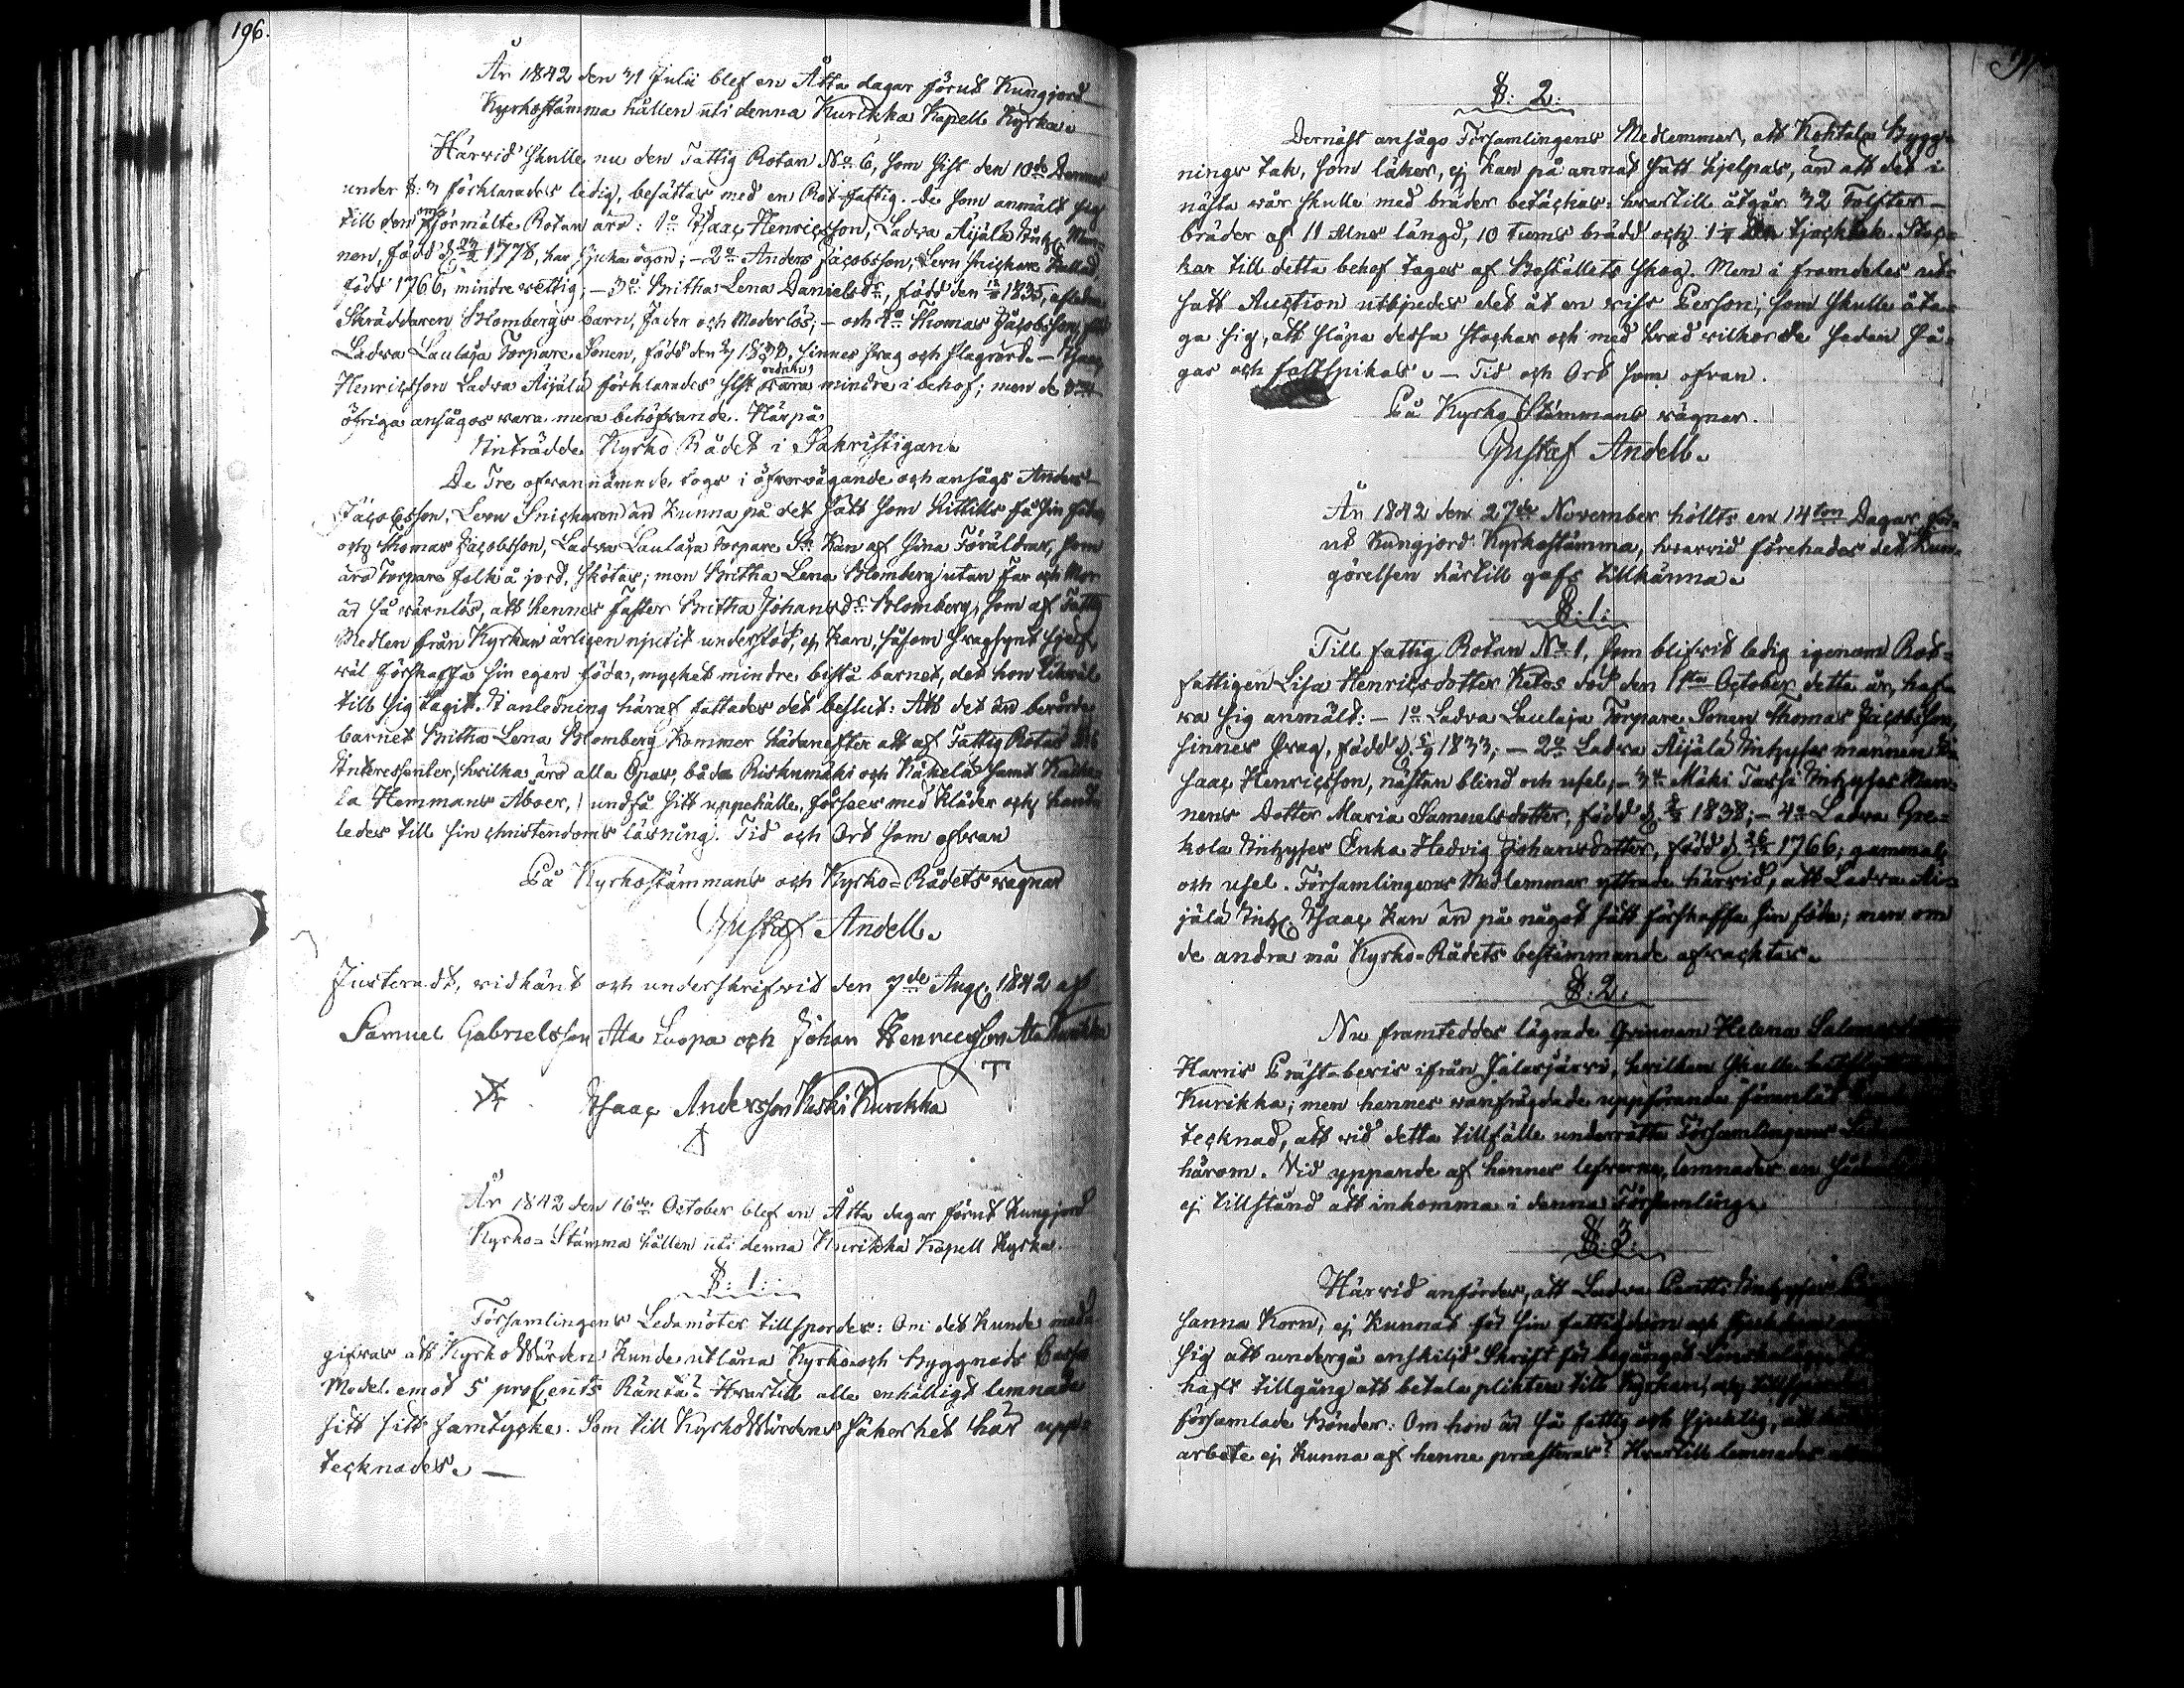 196.
År 1842 den 31 Julii blef en Åtta dagar förut Kungjord
Kyrkostämma hållen uti denna Kurikka Kapell Kyrka.
Härvid skulle nu den Fattig Rotan No 6, som sist den 10de
under §: 3 förklarades ledig, besättas med en Rot-fattig. De som anmält sig
till den omförmälte Rotan äro: 1o Isaac Henricsson, Ladva Äijälä
nen, född d. 1778, har sjuka ögon; - 2o Anders Jacobsson, Lern Snickare kallad,
född 1766, mindre wettig; - 3o Britha Lena Danielsdr, född den 1835, afledne
Skräddaren Blombergs barn, Fader och Moderlös; - och 4o Thomas Jacobsson,
Ladva Laulaja Torpare Sonen, född den 1833, sinnes svag och ofärdig. - Isaac
Henricsson Ladva Äijälä förklarades wara mindre i behof; men de
öfriga ansågos wara mera behöfvande. Härpå
Inträdde Kyrko Rådet i Sakristigan.
De Tre ofvannämnde togs i öfvervägande och ansågs Anders
Jacobsson, Lern Snickaren än kunna på det sätt som hittills få sin föda,
och Thomas Jacobsson, Ladva Laulaja Torpare Sn kan af sina Föräldrar, som
äro Torpare folk å jord, skötas; men Britha Lena Blomberg utan Far och Mor
är så wärnlös, att hennes Faster Britha Johansdr Blomberg, som af Fattig
Medlen från Kyrkan årligen njutit understöd, ej kan, såsom svagsynt sjelf,
wäl förskaffa sin egen föda, mycket mindre bistå barnet, det hon likväl
till sig tagit. I anledning häraf fattades det beslut: Att det än berörde
barnet Britha Lena Blomberg kommer hädanefter att af Fattig Rotas No 6
Interessenter, hvilka äro alla Opas, båda Riskumäki och Käkelä samt
la Hemmans Åboer, undfå sitt uppehälle, förses med kläder och hand-
ledes till sin christendoms läsning. Tid och Ort som ofvan
På Kyrkostämmans och Kyrko-Rådets wägnar
Gustaf Andell.
Justeradt, vidkänt och underskrifvit den 7de Aug. 1842 af
Samuel Gabrielsson Ala Luopa och Johan Henricsson Ala
Isaac Andersson Keski Kurikka
År 1842 den 16de October blef en Åtta dagar förut kungjord
Kyrko-Stämma hållen uti denna Kurikka Kapell Kyrka.
§: 1:
Församlingens Ledamöter tillspordes: Om det kunde med-
gifvas att KyrkoWärden kunde utlåna Kyrko och byggnads Cassa
Medel emot 5 procents Ränta? Hvartill alle enhälligt lemnade
sitt sitt samtycke. Som till KyrkoWärdens säkerhet här upp-
tecknades. —
§: 2:
Dernäst ansågo Församlingens Medlemmar, att Bygg-
nings tak, som läker, ej kan på annat sätt hjelpas, än att det i
nästa wår skulle med bräder betäckas: hvartill åtgår 32 Tolfter
bräder af 11 Alns längd, 10 Tums brädd och 1 tjocklek. Stoc-
kar till detta behof tages af Boställets skog. Men i framdeles
satt Auction utbjudes det åt en viss Person, som skulle åta-
ga sig, att släpa dessa stockar och med hvad vilkor de sedan så-
gas och fastspikas. - Tid och Ort som ofvan.
På Kyrko Stämmans wägnar.
Gustaf Andell.
År 1842 den 27de November höllts en 14ton Dagar för-
ut Kungjord Kyrkostämma, hvarvid förehades det kun-
görelsen härtill gafs tillkänna.
§: 1:
Till fattig Rotan No 1, som blifvit ledig igenom Rot-
fattigen Lisa Henricsdotter Ketos död den 1sta October detta år, haf-
va sig anmält: - 1o Ladva Laulaja Torpare Sonen Thomas Jacobsson,
sinnes svag, född d. 1833; - 2o Ladva Äijälä Inhyses mannen I-
saac Henricsson, nästan blind och usel; - 3o Mäki Tassi Inhyses Man-
nens Dotter Maria Samuelsdotter, född d. 1838; - 4o Ladva Gre-
kola Inhyses Enka Hedvig Johansdotter, född d. 1766; gammal
och usel. Församlingens Medlemmar yttrade härvid, att Ladva Äi-
jälä Inh. Isaac kan än på något sätt förskaffa sin föda; men om
de andra må Kyrko-Rådets bestämmande afvacktas.
§: 2.
Nu framteddes lägrade qvinnan Helena
Harris Präst-bevis ifrån Jalasjärvi, hvilken skulle
Kurikka; men hennes wanfrägdade uppförande föranlät
tecknad, att vid detta tillfälle underrätta Församlingens
härom. Vid yppande af hennes lefverne, lemnades en sådan
ej tillstånd att inkomma i denna Församling.
§: 3:
Härvid anfördes, att Ladva Pentti Inhyses
Sanna Korn, ej kunnat för sin fattigdom och
sig att undergå enskiljd Skrift för begånget
haft tillgång att betala plikten till Kyrkan, och
församlade Bönder: Om hon är så fattig och sjuklig, att
arbete ej kunna af henne præsteras? Hvartill lemnades